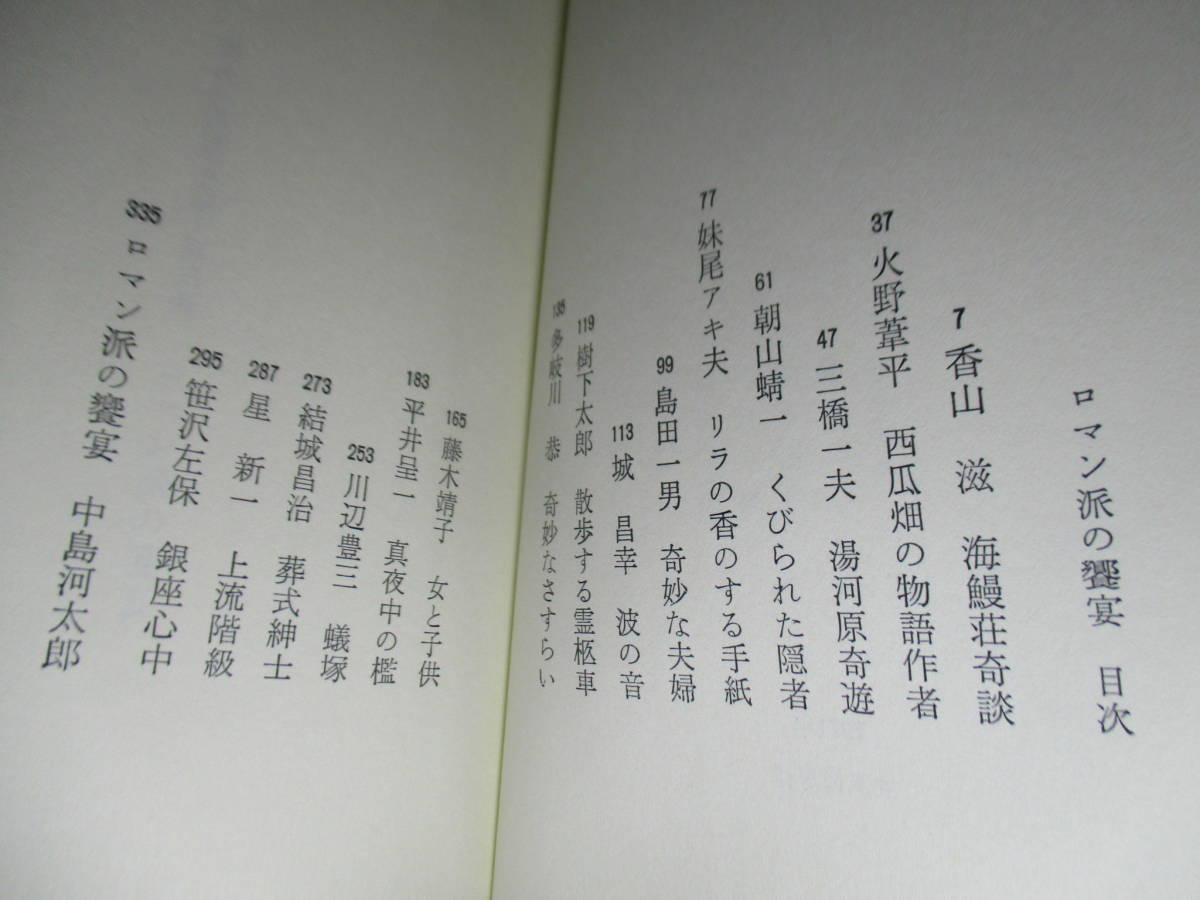 ロマン派の饗宴 目次
7 香山 滋 海鰻荘奇談
37 火野葦平 西瓜畑の物語作者
47 三橋一夫 湯河原奇遊
61 朝山蜻一 くびられた隠者
77 妹尾アキ夫 リラの香のする手紙
99 島田一男 奇妙な夫婦
113 城 昌幸 波の音
119 樹下太郎 散歩する霊柩車
135 多岐川 恭 奇妙なさすらい
165 藤木靖子 女と子供
183 平井呈一 真夜中の檻
253 川辺豊三 蟻塚
273 結城昌治 葬式紳士
287 星 新一 上流階級
295 笹沢左保 銀座心中
335 ロマン派の饗宴 中島河太郎